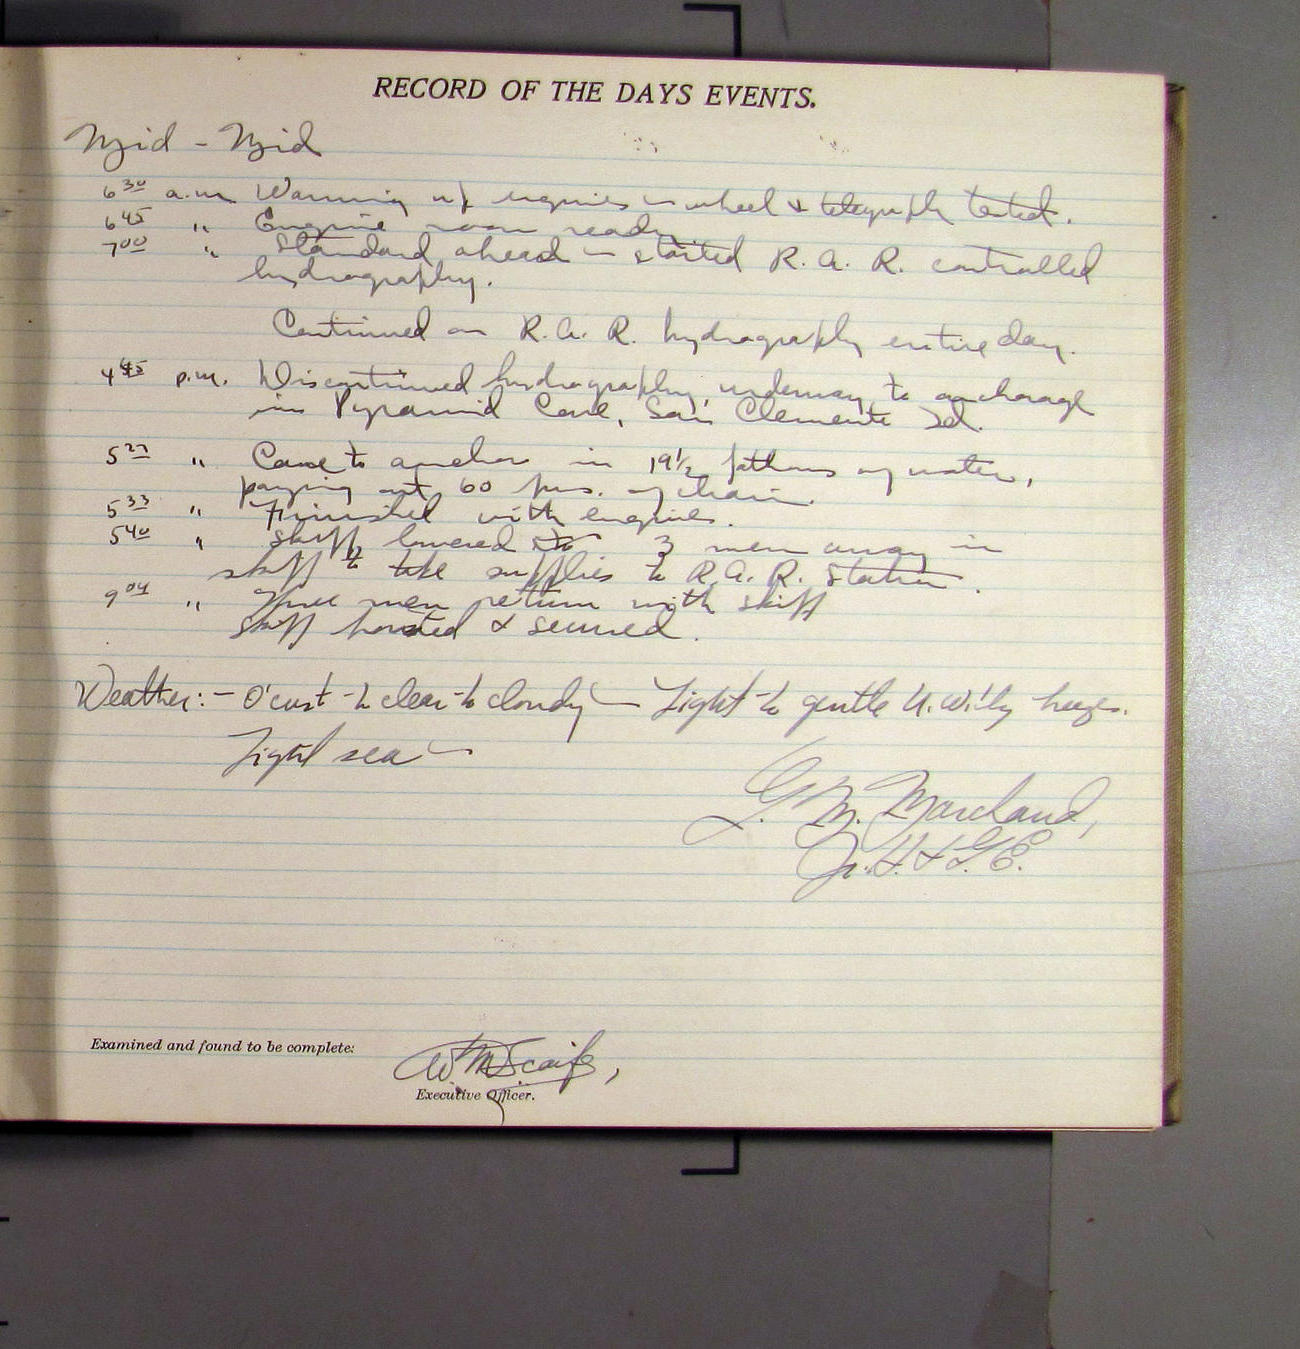 RECORD OF THE DAYS EVENTS.
Mid - Mid
6 30 a.m. Warming up engines - wheel & telegraph tested.
6 45 " Engine room ready
7 00 " Standard ahead - started R. A. R. controlled
hydrography.
Continued on R. A. R. hydrography entire day.
4 45 p.m. Discontinued hydrography, underway to anchorage
in Pyramid Cove, San Clemente Id.
5 27 " Came to anchor in 19 1/2 fathoms of water,
paying out 60 fms. of chain.
5 33 " Finished with engines.
5 40 " Skiff lowered 3 men away in
skiff to take supplies to R. A. R. Station.
9 04 " Three men return with skiff
Skiff hoisted & secured.
Weather:- O'cast - to clear - to cloudy - Light - to gentle N.W.'ly breeze.
Light sea -
G. M. Marchand,
Jr. H. & G. E.
Examined and found to be complete:
Wm Scaife,
Executive Officer.